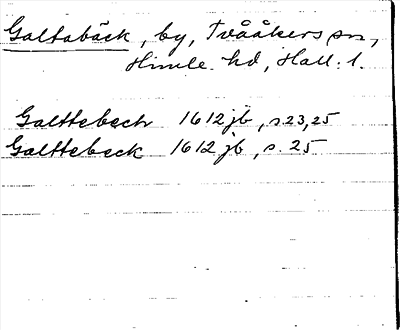 Galtabäck, by, Tvååkers sn,
Himle hd, Hall. l.
Galttebech 1612 jb, s. 23, 25
Galttebeck 1612 jb, s. 25